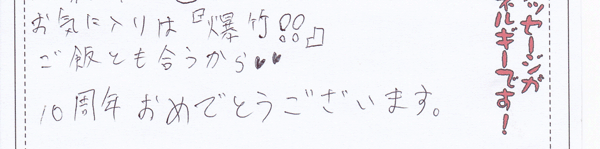 お気に入りは『爆竹!!』
ご飯とも合うから♥♥
10周年おめでとうございます。
ッセージが
ネルギーです!